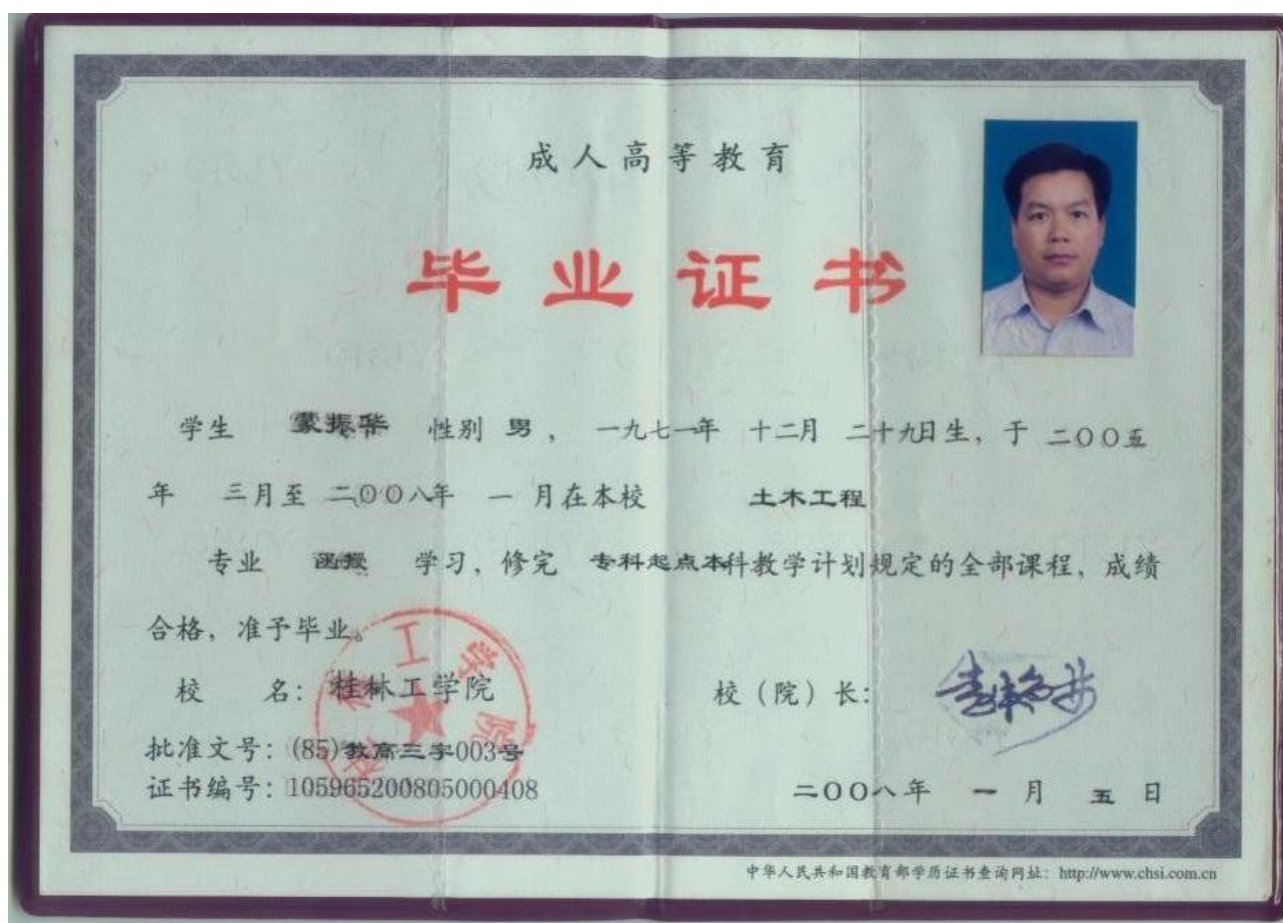 成人高等教育
毕业证书
学生 蒙振华 性别 男 ， 一九七一年 十二月 二十九日生，于 二〇〇五
年 三月至 二〇〇八年 一 月在本校 土木工程
专业 函授 学习，修完 专科起点本科教学计划规定的全部课程，成绩
合格，准予毕业。
校 名：桂林工学院 校（院）长：
批准文号：(85)教高三字003号
证书编号：105965200805000408 二〇〇八年 一 月 五 日
中华人民共和国教育部学历证书查询网址：http://www.chsi.com.cn